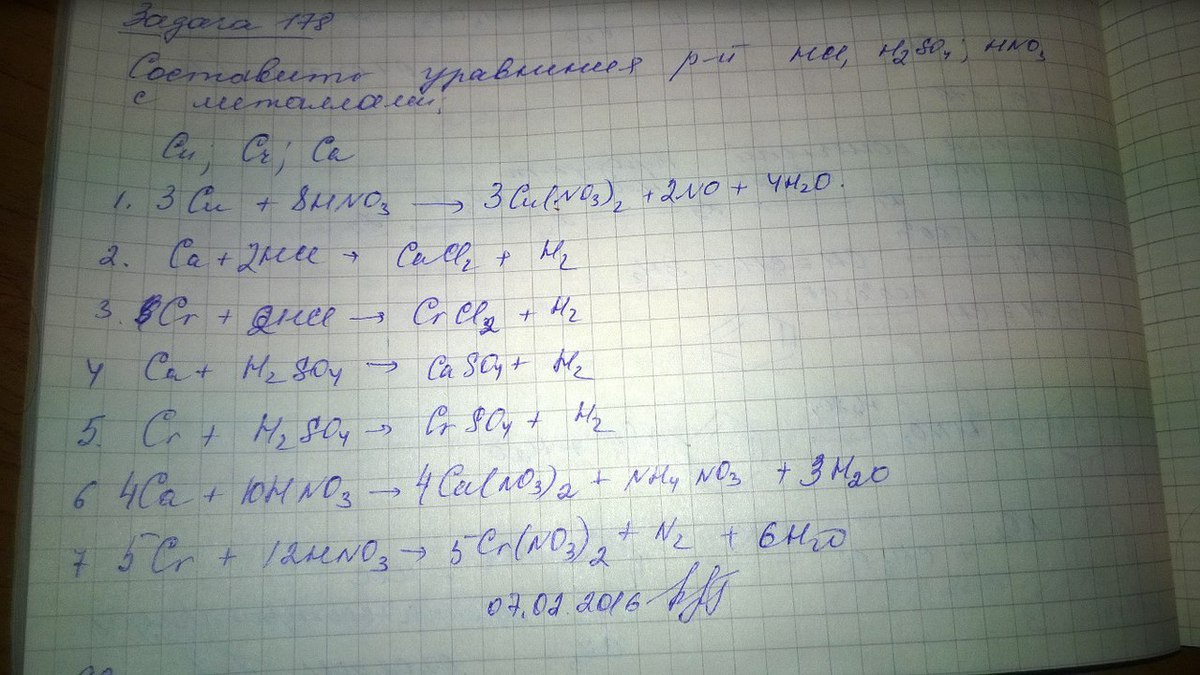 Задача 178
Составить уравнения р-й HCl, H₂SO₄; HNO₃
с металлами;
Cu; Cr; Ca
1. 3Cu + 8HNO₃ → 3Cu(NO₃)₂ + 2NO + 4H₂O.
2. Ca + 2HCl → CaCl₂ + H₂
3. Cr + 2HCl → CrCl₂ + H₂
4 Ca + H₂SO₄ → CaSO₄ + H₂
5. Cr + H₂SO₄ → CrSO₄ + H₂
6 4Ca + 10HNO₃ → 4Ca(NO₃)₂ + NH₄NO₃ + 3H₂O
7 5Cr + 12HNO₃ → 5Cr(NO₃)₂ + N₂ + 6H₂O
07.02.2016